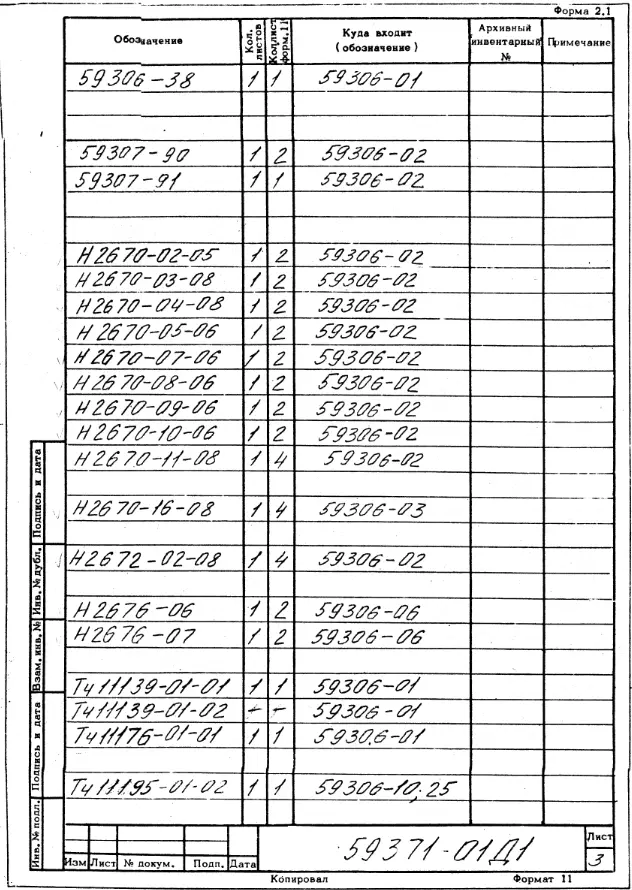 Форма 2.1
Обозначение Кол. листов Кол.лист форм.11 Куда входит (обозначение) Архивный инвентарный № Примечание
59306-38 1 1 59306-01
59307-90 1 2 59306-02
59307-91 1 1 59306-02
Н2670-02-05 1 2 59306-02
Н2670-03-08 1 2 59306-02
Н2670-04-08 1 2 59306-02
Н2670-05-06 1 2 59306-02
Н2670-07-06 1 2 59306-02
Н2670-08-06 1 2 59306-02
Н2670-09-06 1 2 59306-02
Н2670-10-06 1 2 59306-02
Н2670-11-08 1 4 59306-02
Н2670-16-08 1 4 59306-03
Н2672-02-08 1 4 59306-02
Н2676-06 1 2 59306-06
Н2676-07 1 2 59306-06
Тч11139-01-01 1 1 59306-01
Тч11139-01-02 - - 59306-01
Тч11176-01-01 1 1 59306-01
Тч11195-01-02 1 1 59306-10;25
Подпись и дата
Инв. № дубл.
Взам. инв. №
Подпись и дата
Инв. № подл.
Изм Лист № докум. Подп. Дата
59371-01Д1
Лист
3
Копировал Формат 11